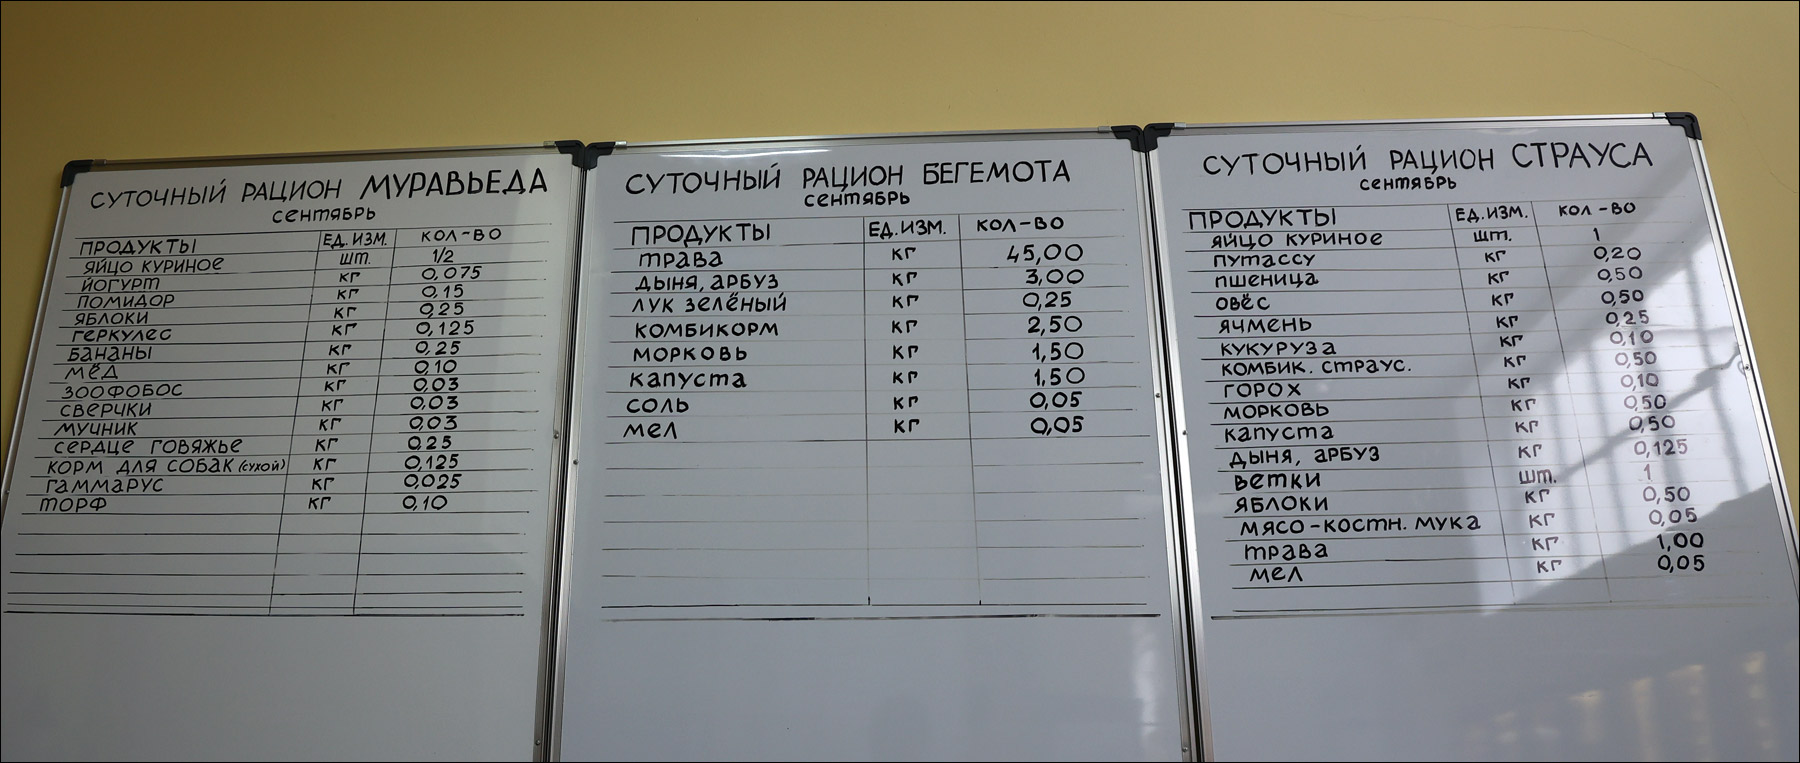 СУТОЧНЫЙ РАЦИОН МУРАВЬЕДА
сентябрь
ПРОДУКТЫ ЕД.ИЗМ. КОЛ-ВО
яйцо куриное шт. 1/2
йогурт кг 0,075
помидор кг 0,15
яблоки кг 0,25
геркулес кг 0,125
бананы кг 0,25
мёд кг 0,10
зоофобос кг 0,03
сверчки кг 0,03
мучник кг 0,03
сердце говяжье кг 0,25
корм для собак (сухой) кг 0,125
гаммарус кг 0,025
торф кг 0,10
СУТОЧНЫЙ РАЦИОН БЕГЕМОТА
сентябрь
ПРОДУКТЫ ЕД.ИЗМ. КОЛ-ВО
трава кг 45,00
дыня, арбуз кг 3,00
лук зелёный кг 0,25
комбикорм кг 2,50
морковь кг 1,50
капуста кг 1,50
соль кг 0,05
мел кг 0,05
СУТОЧНЫЙ РАЦИОН СТРАУСА
сентябрь
ПРОДУКТЫ ЕД.ИЗМ. КОЛ-ВО
яйцо куриное шт. 1
путассу кг 0,20
пшеница кг 0,50
овёс кг 0,50
ячмень кг 0,25
кукуруза кг 0,10
комбик. страус. кг 0,50
горох кг 0,10
морковь кг 0,50
капуста кг 0,50
дыня, арбуз кг 0,125
ветки шт. 1
яблоки кг 0,50
мясо-костн. мука кг 0,05
трава кг 1,00
мел кг 0,05